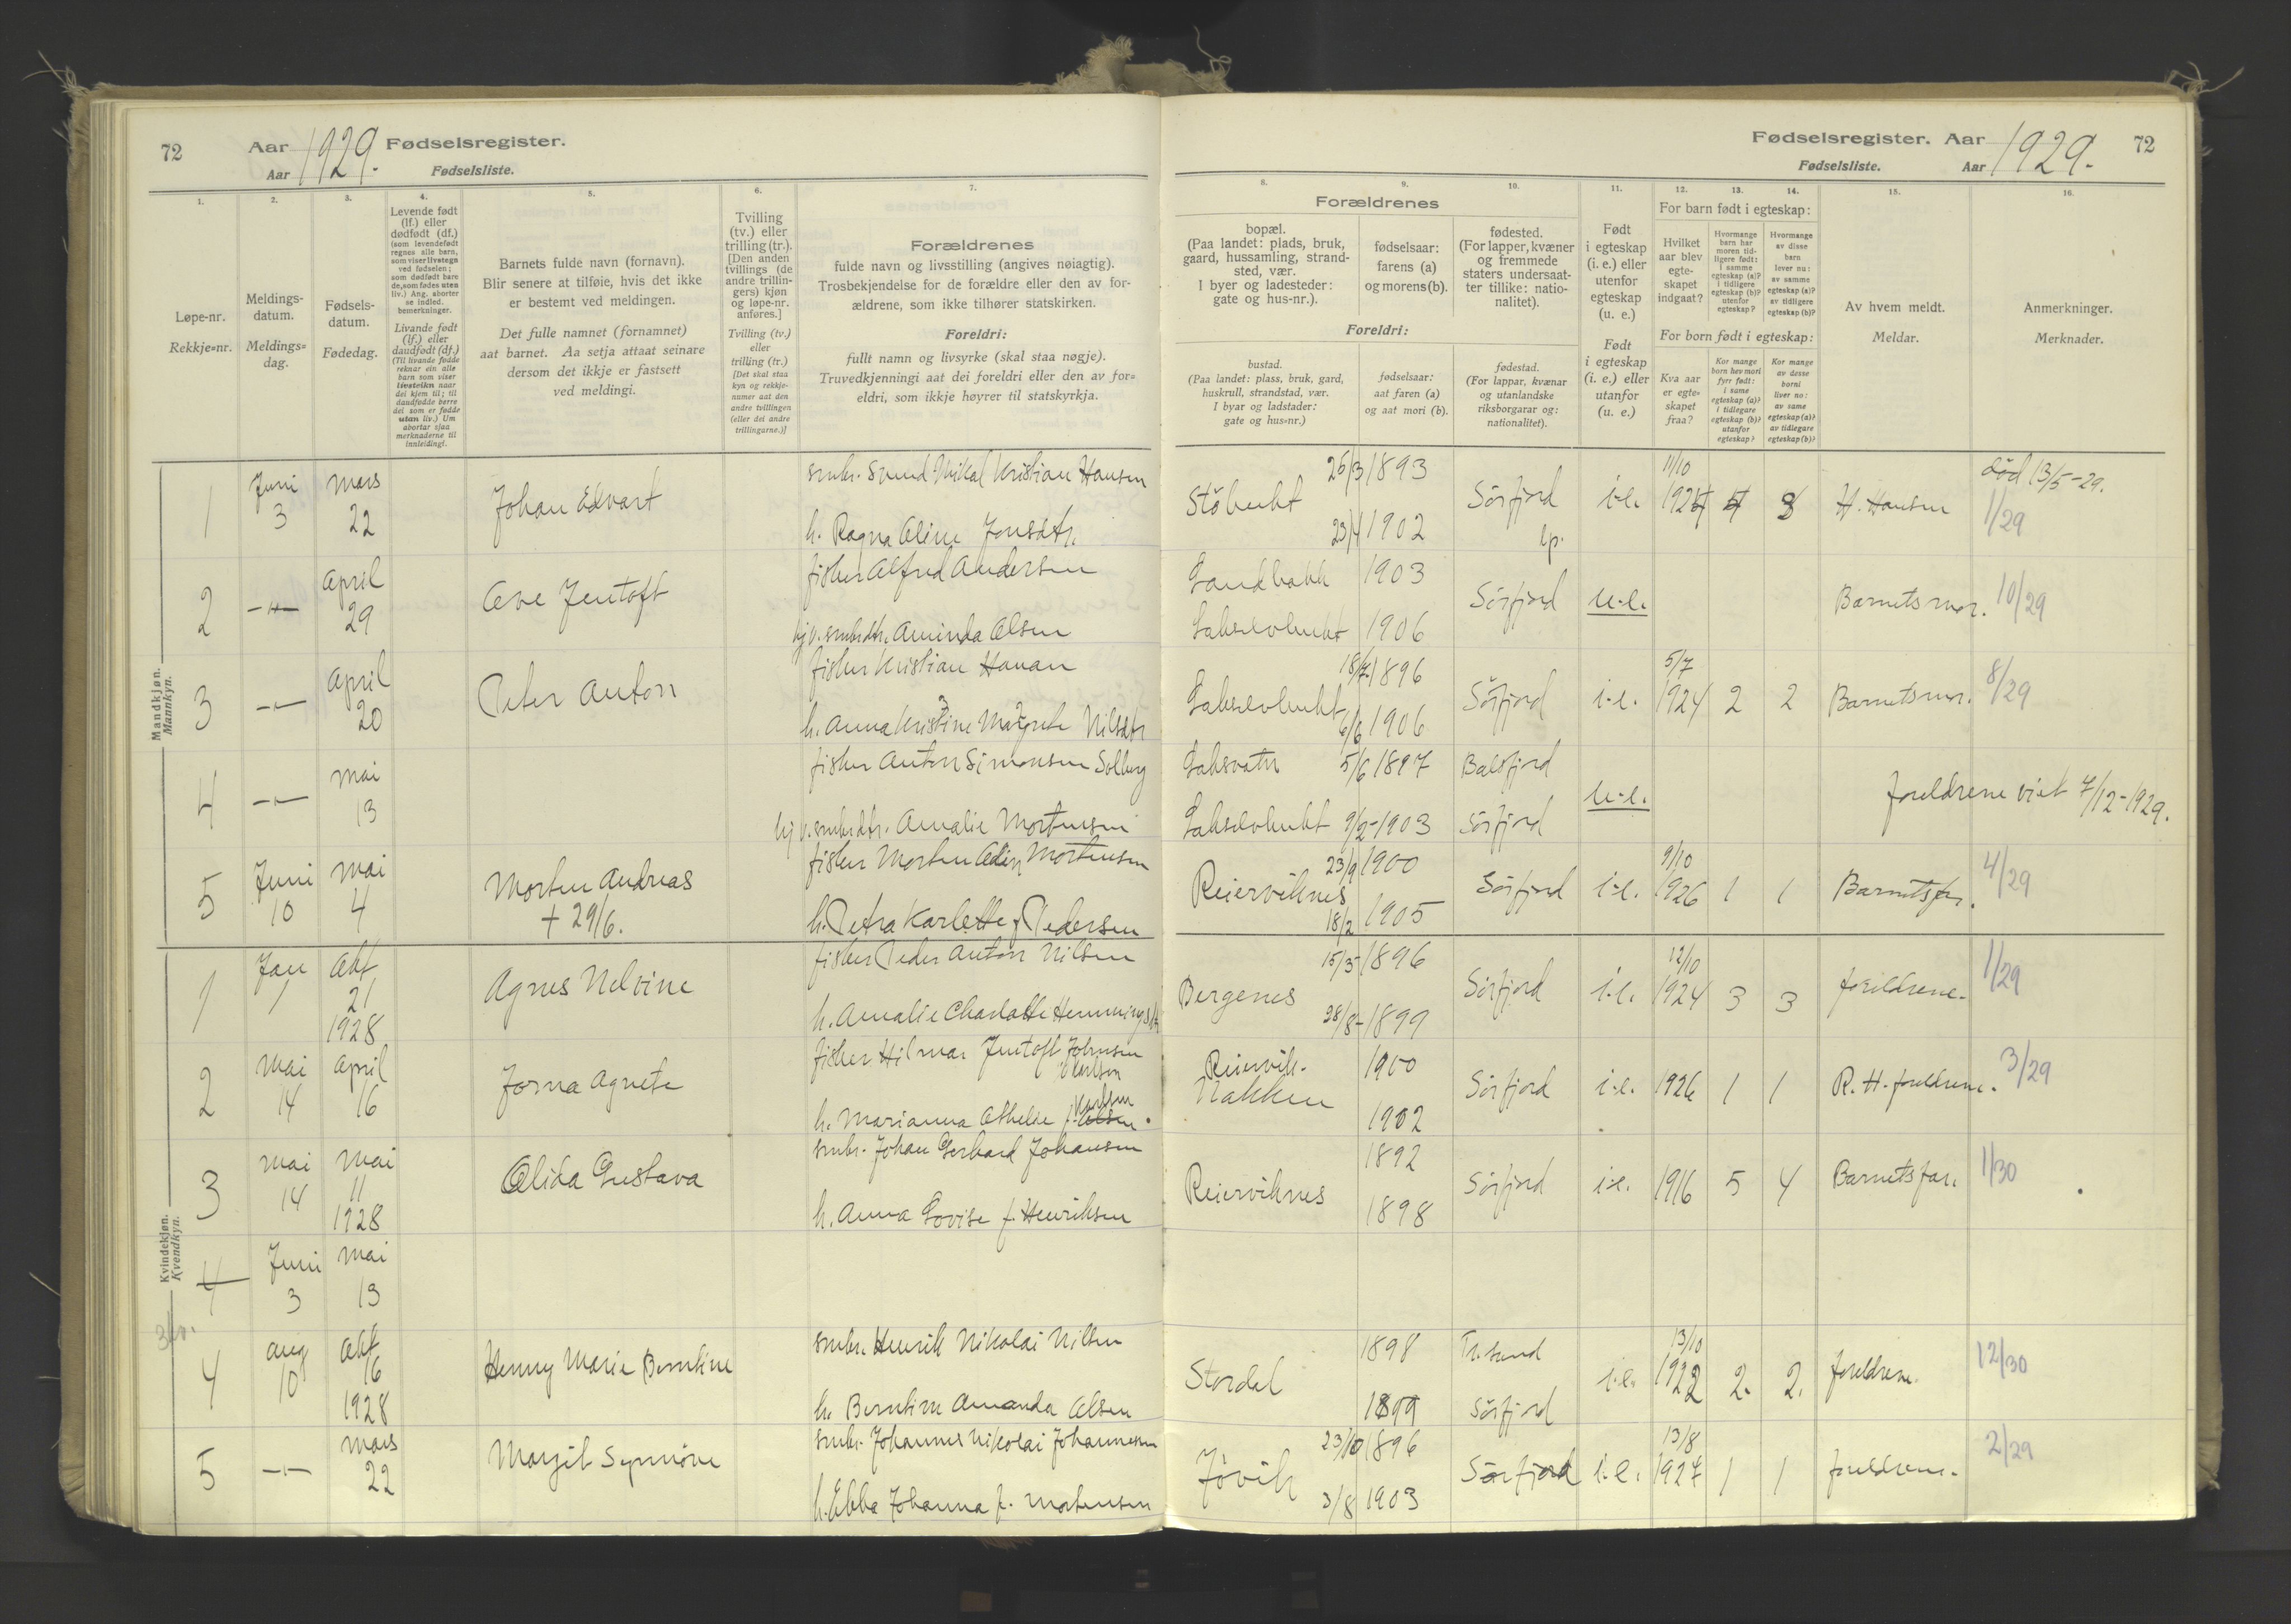 72
Aar 1929. Fødselsregister.
Aar Fødselsliste.
1.
2.
3.
4.
5.
6.
7.
Løpe-nr.
Rekkje=nr.
Meldings-
datum.
Meldings=
dag.
Fødsels-
datum.
Fødedag.
Levende født
(lf.) eller
dødfødt (df.)
(som levendefødt
regnes alle barn,
som viser livstegn
ved fødselen;
som dødfødt bare
de, som fødes uten
liv.) Ang. aborter
se indled.
bemerkninger.
Livande født
(lf.) eller
daudfødt (df.)
(Til livande fødde
reknar ein alle
barn som viser
livsteikn naar
dei kjem til; til
daudfødde berre
dei som er fødde
utan liv.) Um
abortar sjaa
merknaderne til
innleidingi.
Barnets fulde navn (fornavn).
Blir senere at tilføie, hvis det ikke
er bestemt ved meldingen.
Det fulle namnet (fornamnet)
aat barnet. Aa setja attaat seinare
dersom det ikkje er fastsett
ved meldingi.
Tvilling
(tv.) eller
trilling (tr.).
[Den anden
tvillings (de
andre trillin-
gers) kjøn
og løpe-nr.
anføres.]
Tvilling (tv.)
eller
trilling (tr.)
[Det skal staa
kyn og rekkje-
numer aat den
andre tvillingen
(eller dei andre
trillingarne.)]
Forældrenes
fulde navn og livsstilling (angives nøiagtig).
Trosbekjendelse for de forældre eller den av for-
ældrene, som ikke tilhører statskirken.
Foreldri:
fullt namn og livsyrke (skal staa nøgje).
Truvedkjenningi aat dei foreldri eller den av for=
eldri, som ikkje høyrer til statskyrkja.
Mandkjøn.
Mannkyn.
1
Juni
3
mars
22
Johan Edvart
smbr. Svend Mikal Kristian Hansen
h. Ragna Oline Jonsdtr.
2
—"—
April
29
Ove Jentoft
fisker Alfred Andersen
pj. v. smbrdtr. Aminda Olsen
3
—"—
April
20
Peter Anton
fisker Kristian Hanan
h. Anna Kristine Margrete Nilsdtr
4
—"—
mai
13
fisker Anton Simonsen Solberg
pj. v. smbrdtr. Amalie Mortensen
5
Juni
10
mai
4
Morten Andreas
+ 29/6.
fisker Morten Odin Mortensen
h. Petra Karlotte f. Pedersen
Kvindekjøn.
Kvendkyn.
1
Jan
1
Okt
21
1928
Agnes Nelvine
fisker Peder Anton Nilsen
h. Amalie Charlotte Hemmingsdtr
2
mai
14
April
16
Jorna Agnete
fisker Hilmar Jentoft Johnsen
Karlsen
h. Marianna Othelie f. Olsen.
Karlsen
3
mai
14
mai
11
1928
Olida Gustava
smbr. Johan Gerhard Johansen
h. Anna Lovise f. Henriksen
4
Juni
3
mai
13
4
aug
10
Okt
16
1928
Henny Marie Berntine
smbr. Henrik Nikolai Nilsen
h. Berntine Amanda Olsen
5
—"—
mars
22
Margit Synnøve
smbr. Johannes Nikolai Johannesen
h. Ebba Johanna f. Mortensen
Fødselsregister. Aar 1929. 72
Fødselsliste. Aar
8.
9.
10.
11.
12.
13.
14.
15.
16.
Forældrenes
bopæl.
(Paa landet: plads, bruk,
gaard, hussamling, strand-
sted, vær.
I byer og ladesteder:
gate og hus-nr.).
fødselsaar:
farens (a)
og morens (b).
fødested.
(For lapper, kvæner
og fremmede
staters undersaat-
ter tillike: natio-
nalitet).
Foreldri:
bustad.
(Paa landet: plass, bruk, gard,
huskrull, strandstad, vær.
I byar og ladstader:
gate og hus=nr.)
fødselsaar:
aat faren (a)
og aat mori (b).
fødestad.
(For lappar, kvænar
og utanlandske
riksborgarar og:
nationalitet).
Født
i egteskap
(i. e.) eller
utenfor
egteskap
(u. e.)
Født
i egteskap
(i. e.) eller
utanfor
(u. e.)
For barn født i egteskap:
Hvilket
aar blev
egte-
skapet
indgaat?
Hvormange
barn har
moren tid-
ligere født:
i samme
egteskap (a)?
i tidligere
egteskap (b)?
utenfor
egteskap?
Hvormange
av disse
barn
lever nu:
av samme
egteskap (a)?
av tidligere
egteskap (b)?
For born født i egteskap:
Kva aar
er egte=
skapet
fraa?
Kor mange
born hev mori
fyrr født:
i same
egteskap (a)?
i tidlegare
egteskap (b)?
utanfor
egteskap?
Kor mange
av desse
borni
liver no:
av same
egteskap (a)?
av tidlegare
egteskap (b)?
Av hvem meldt.
Meldar.
Anmerkninger.
Merknader.
Støbukt
26/3 1893
23/4 1902
Sørfjord
lp.
i.e.
11/10
1924
4
3
H. Hansen
død 13/5-29.
1/29
Sandbakk
1903
Lakselvbukt
1906
Sørfjord
u.e.
Barnets mor.
10/29
Lakselvbukt
18/7 1896
6/6 1906
Sørfjord
i.e.
5/7
1924
2
2
Barnets mor.
8/29
Laksvatn
5/6 1897
Balsfjord
Lakselvbukt
9/2-1903
Sørfjord
u.e.
foreldrene viet 7/12-1929.
Reierviknes
23/9 1900
18/2 1905
Sørfjord
i.e.
9/10
1926
1
1
Barnets far.
4/29
Bergenes
15/3-1896
28/8-1899
Sørfjord
i.e.
12/10
1924
3
3
foreldrene.
1/29
Reiervik-
Nakken
1900
1902
Sørfjord
i.e.
1926
1
1
R. H. foreldrene.
3/29
Reierviknes
1892
1898
Sørfjord
i.e.
1916
5
4
Barnets far.
1/30
Stordal
1898
1899
Tr.sund
Sørfjord
i.e.
13/10
1922
2.
2.
foreldrene.
12/30
Jøvik
23/10 1896
3/8 1903
Sørfjord
i.e.
13/8
1927
1
1
foreldrene.
2/29